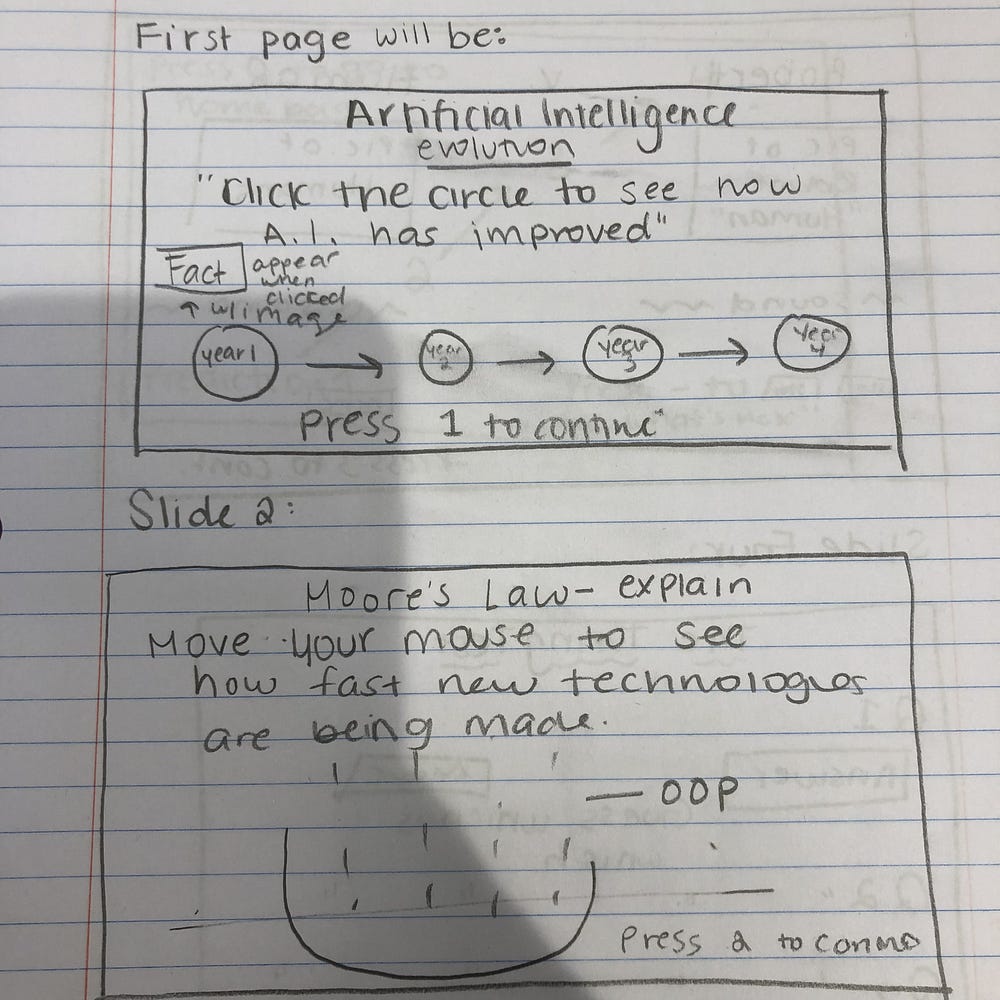 First page will be:
Artificial Intelligence
evolution
"Click the circle to see how
A.I. has improved"
Fact
appear
when
clicked
↑ w/image
year 1
year 2
year 3
year 4
press 1 to contine"
Slide 2:
Moore's Law- explain
Move your mouse to see
how fast new technologies
are being made.
— OOP
Press 2 to